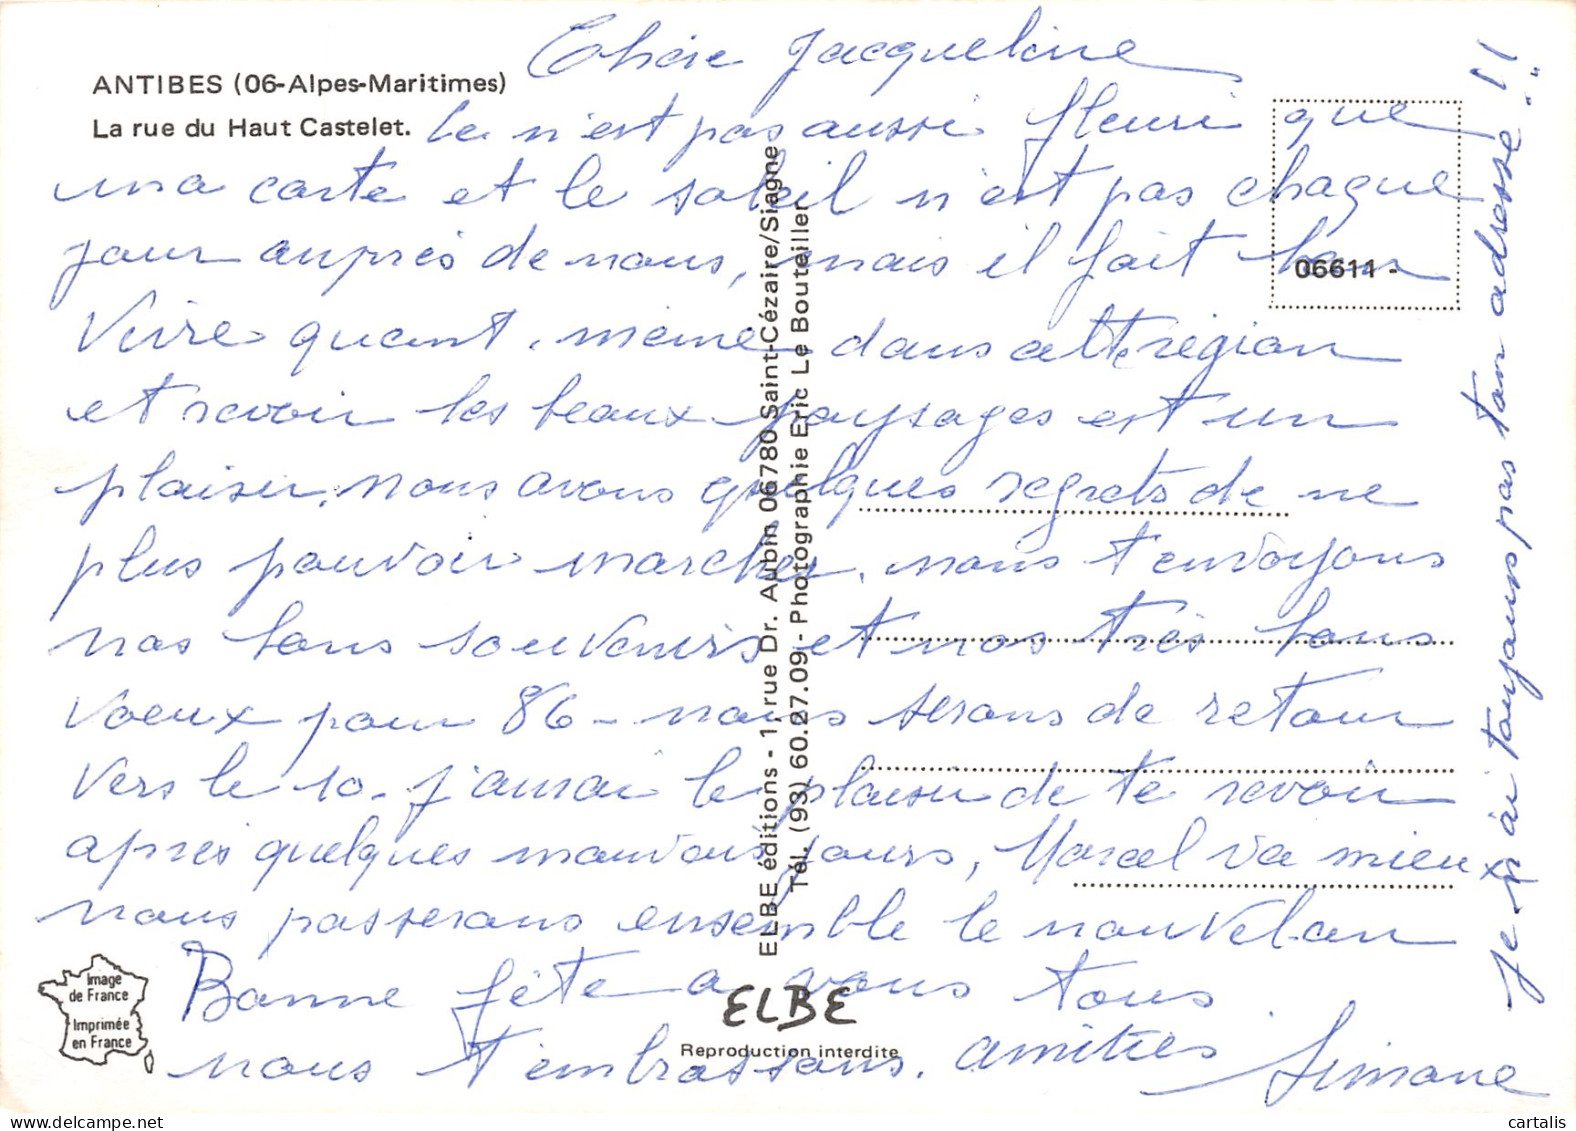 ANTIBES (06-Alpes-Maritimes)
La rue du Haut Castelet.
Chère Jacqueline
Ce n'est pas aussi fleuri que
ma carte et le soleil n'est pas chaque
jour auprès de nous, mais il fait bon
vivre quant même dans cette région
et revoir les beaux paysages est un
plaisir, nous avons quelques regrets de ne
plus pouvoir marcher, nous t'envoyons
nos bons souvenirs et nos très bons
voeux pour 86 - nous serons de retour
vers le 10. j'aurai le plaisir de te revoir
après quelques mauvais jours, Marcel va mieux
nous passerons ensemble le nouvel an
Bonne fête a vous tous
nous t'embrassons. amitiés Simone
Je n'ai toujours pas ton adresse !!
06611 -
ELBE éditions - 1, rue Dr. Aubin 06780 Saint-Cézaire/Siagne
Tél. (93) 60.27.09 - Photographie Eric Le Bouteiller
Image
de France
Imprimée
en France
ELBE
Reproduction interdite
cartalis